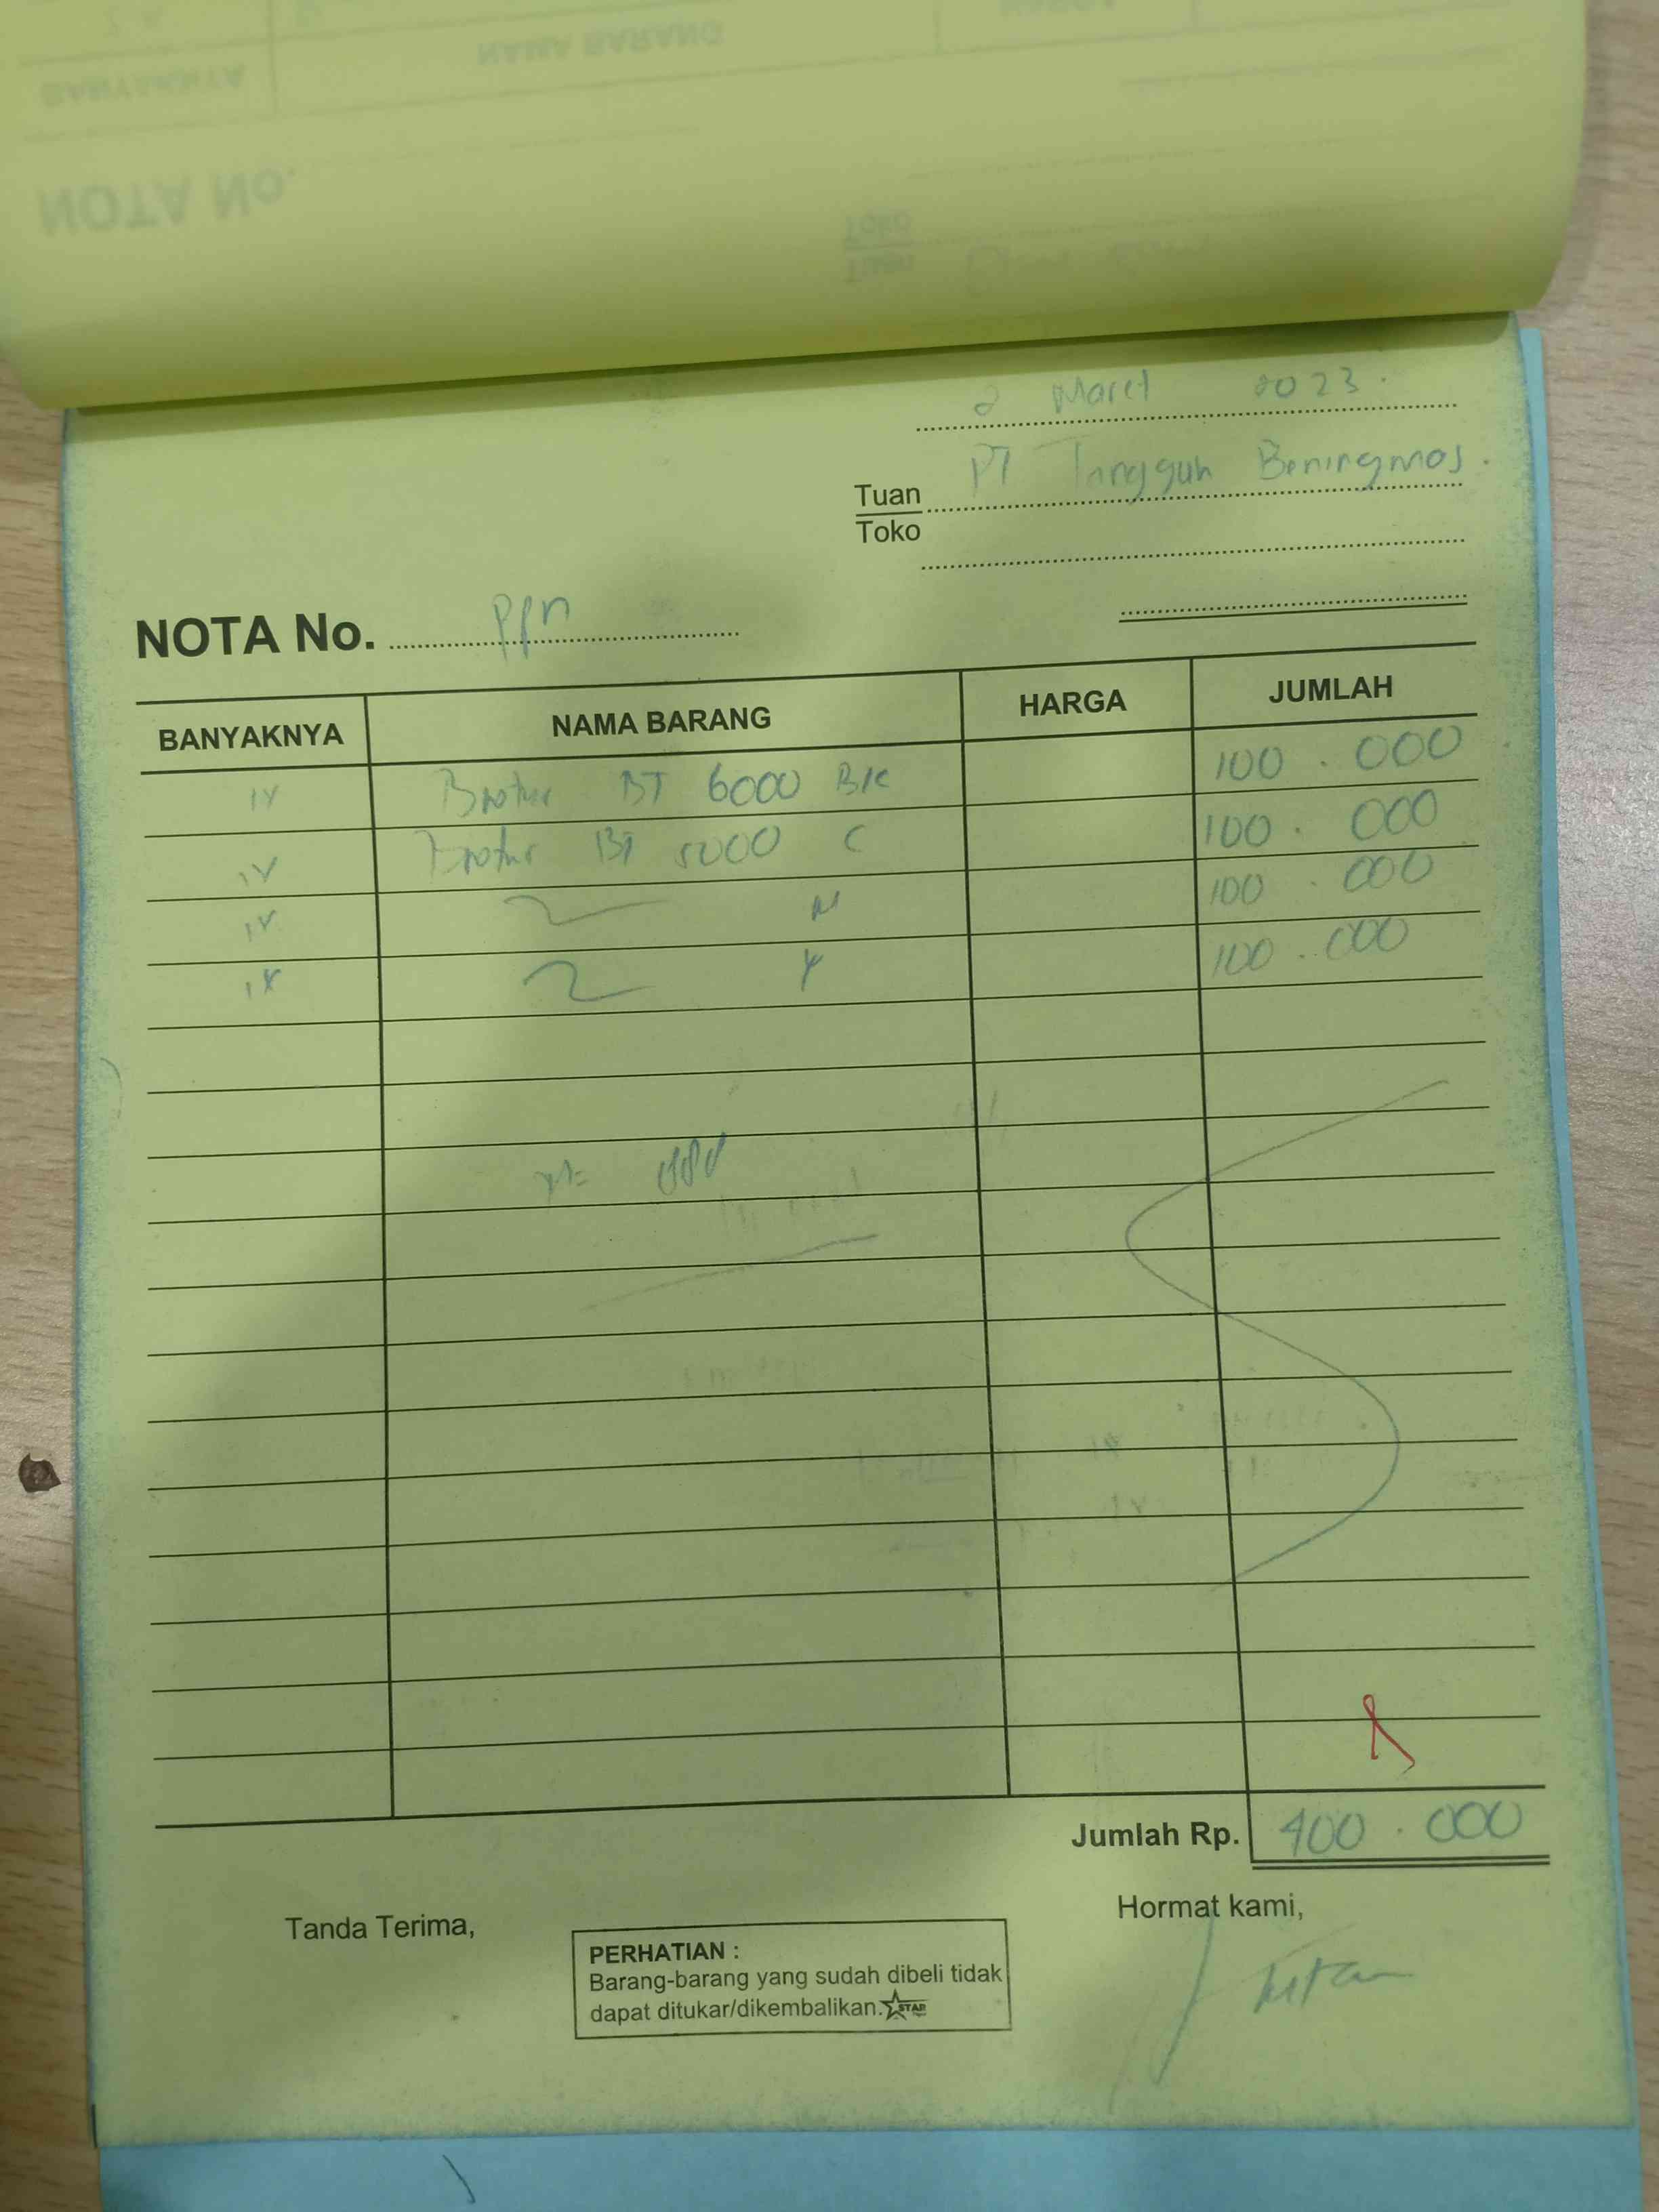 2 Maret 2023.
PT Tangguh Beningmas.
Tuan
Toko
NOTA No. PPn
BANYAKNYA NAMA BARANG HARGA JUMLAH
1x Brother BT 6000 BK 100.000
1x Brother BT 5000 C 100.000
1x M 100.000
1x Y 100.000
Jumlah Rp. 400.000
Tanda Terima,
Hormat kami,
PERHATIAN :
Barang-barang yang sudah dibeli tidak
dapat ditukar/dikembalikan. STAR